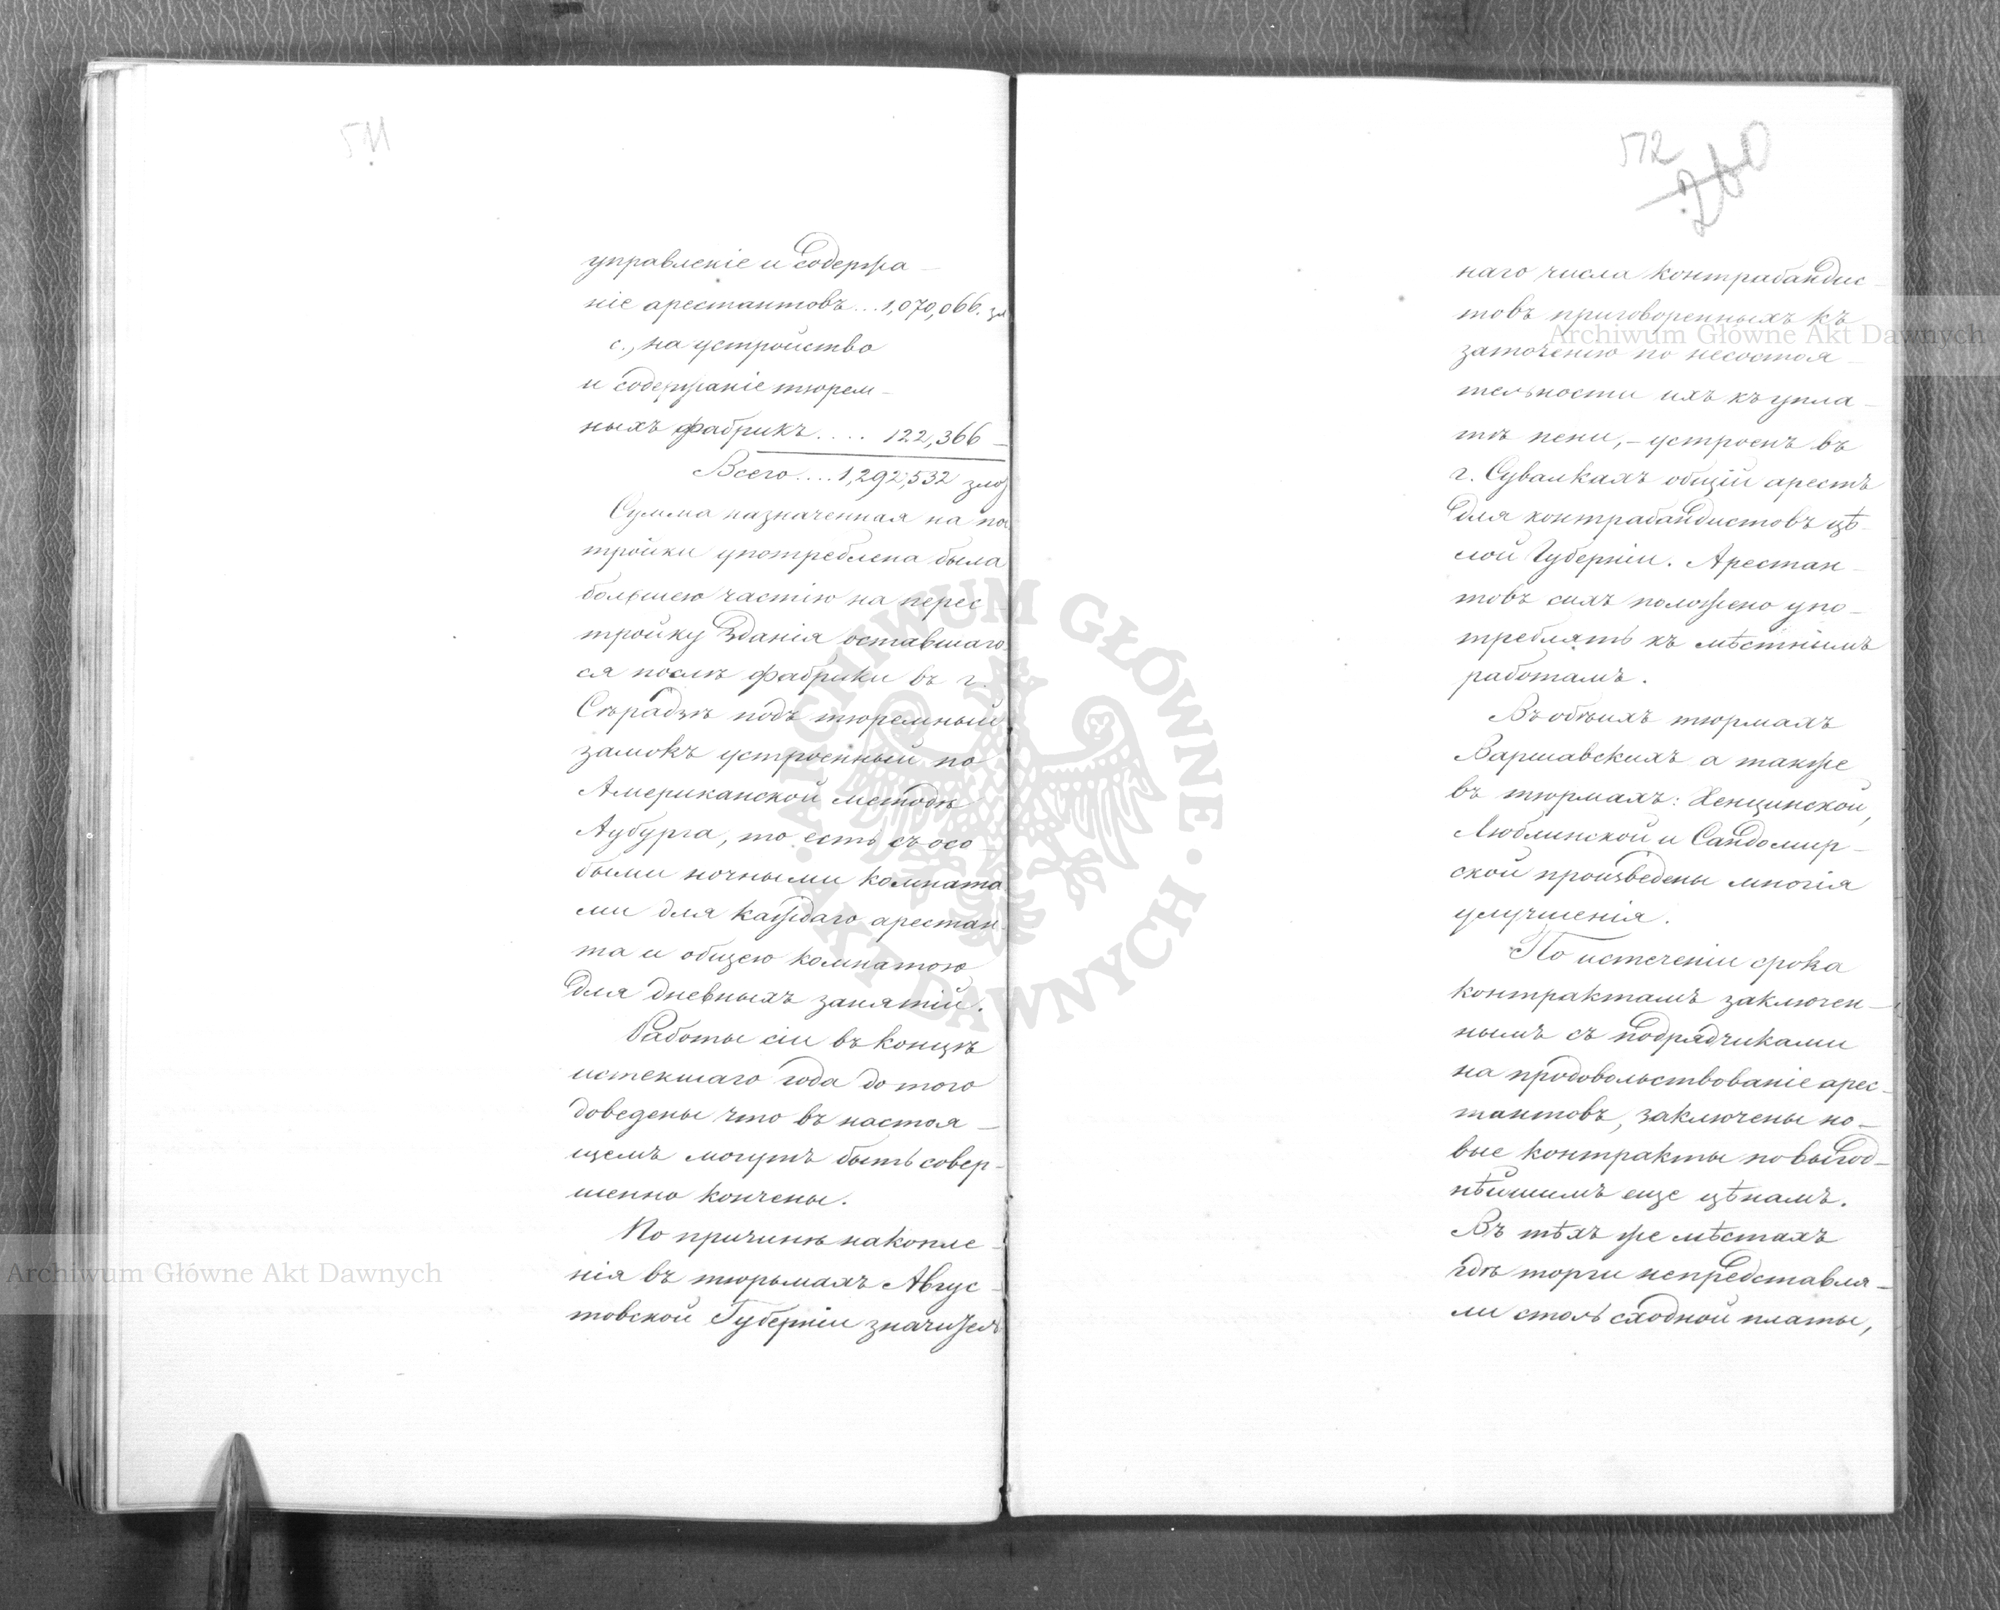 511
управленіе и содержа–
ніе арестантовъ... 1,070,066. зл
с., на устройство
и содержаніе тюрем–
ныхъ фабрикъ.... 122,366 —
Всего.... 1,292,532 зло
Сумма назначенная на по
тройки употреблена была
большею частію на перес–
тройку зданія оставшаго
ся послѣ фабрики въ г.
Сѣрадзѣ подъ тюремный
замокъ устроенный по
Американской методѣ
Аубурга, то есть съ осо–
быми ночными комната
ми для каждаго арестан
та и общею комнатою
для дневныхъ занятій.
Работы сіи въ концѣ
истекшаго года до того
доведены что въ настоя–
щемъ могутъ быть совер–
шенно кончены.
По причинѣ накопле–
нія въ тюрьмахъ Авгус–
товской Губерніи значител
512
260
наго числа контрабандис–
товъ приговоренныхъ къ
заточенію по несостоя–
тельности ихъ къ упла–
тѣ пени,– устроенъ въ
г. Сувалкахъ общій арестъ
для контрабандистовъ цѣ–
лой Губерніи. Арестан–
товъ сихъ положено упо–
треблять къ мѣстнымъ
работамъ.
Въ обѣихъ тюрмахъ
Варшавскихъ а также
въ тюрмахъ: Хенцинской,
Люблинской и Сандомир–
ской произведены многія
улучшенія.
По истеченіи срока
контрактамъ заключен–
нымъ съ подрядчиками
на продовольствованіе арес–
тантовъ, заключены но–
вые контракты по выгод–
нѣйшимъ еще цѣнамъ.
Въ тѣхъ же мѣстахъ
гдѣ торги непредставля–
ли столь сходной платы,
Archiwum Główne Akt Dawnych
Archiwum Główne Akt Dawnych
ARCHIWUM GŁÓWNE · AKT DAWNYCH ·